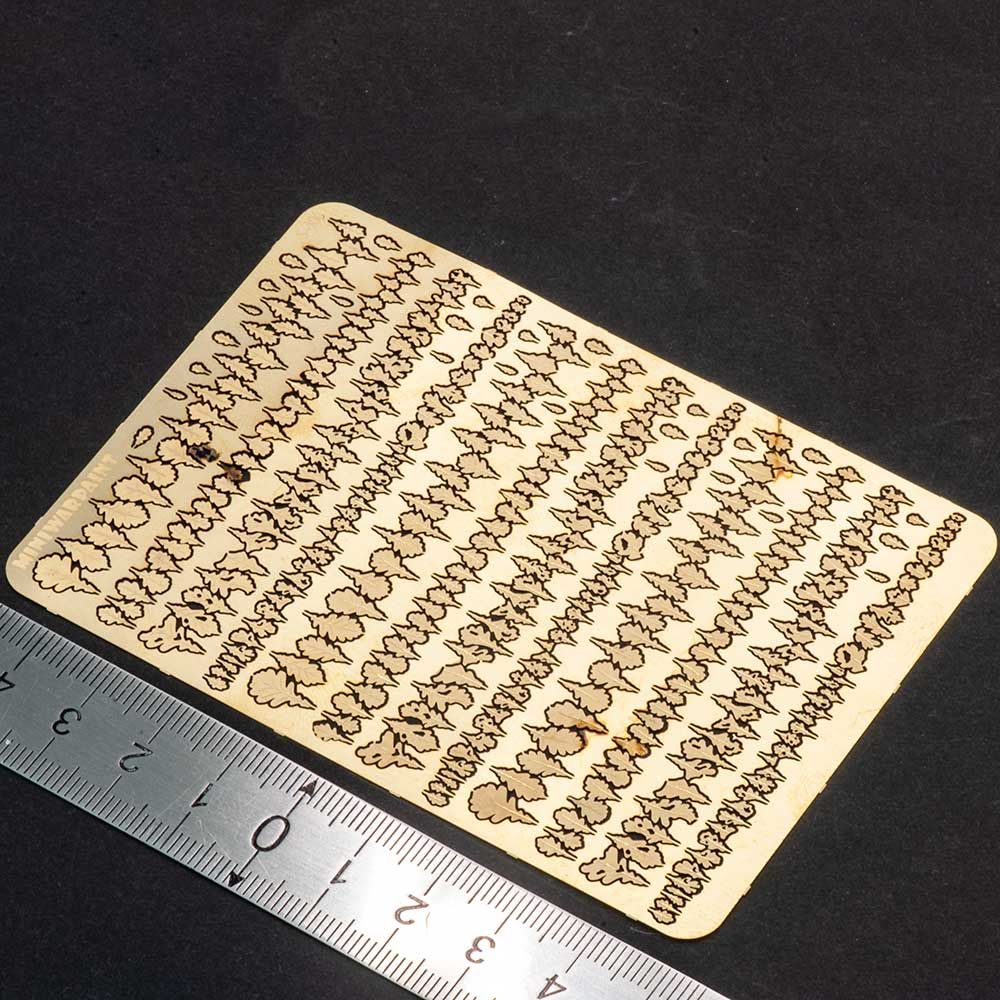 MINIWARPAINT
4 3 2 1 0 1 2 3 4